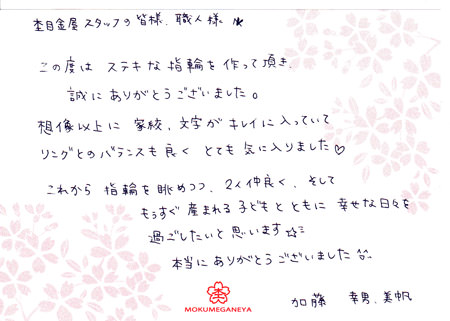 杢目金屋スタッフの皆様、職人様
この度は ステキな指輪を作って頂き、
誠にありがとうございました。
想像以上に 家紋、文字がキレイに入っていて
リングとのバランスも良く とても気に入りました♡
これから 指輪を眺めつつ、2人仲良く、そして
もうすぐ産まれる子どもとともに 幸せな日々を
過ごしたいと思います☆彡
本当にありがとうございました^^
MOKUMEGANEYA
加藤 幸男、美帆